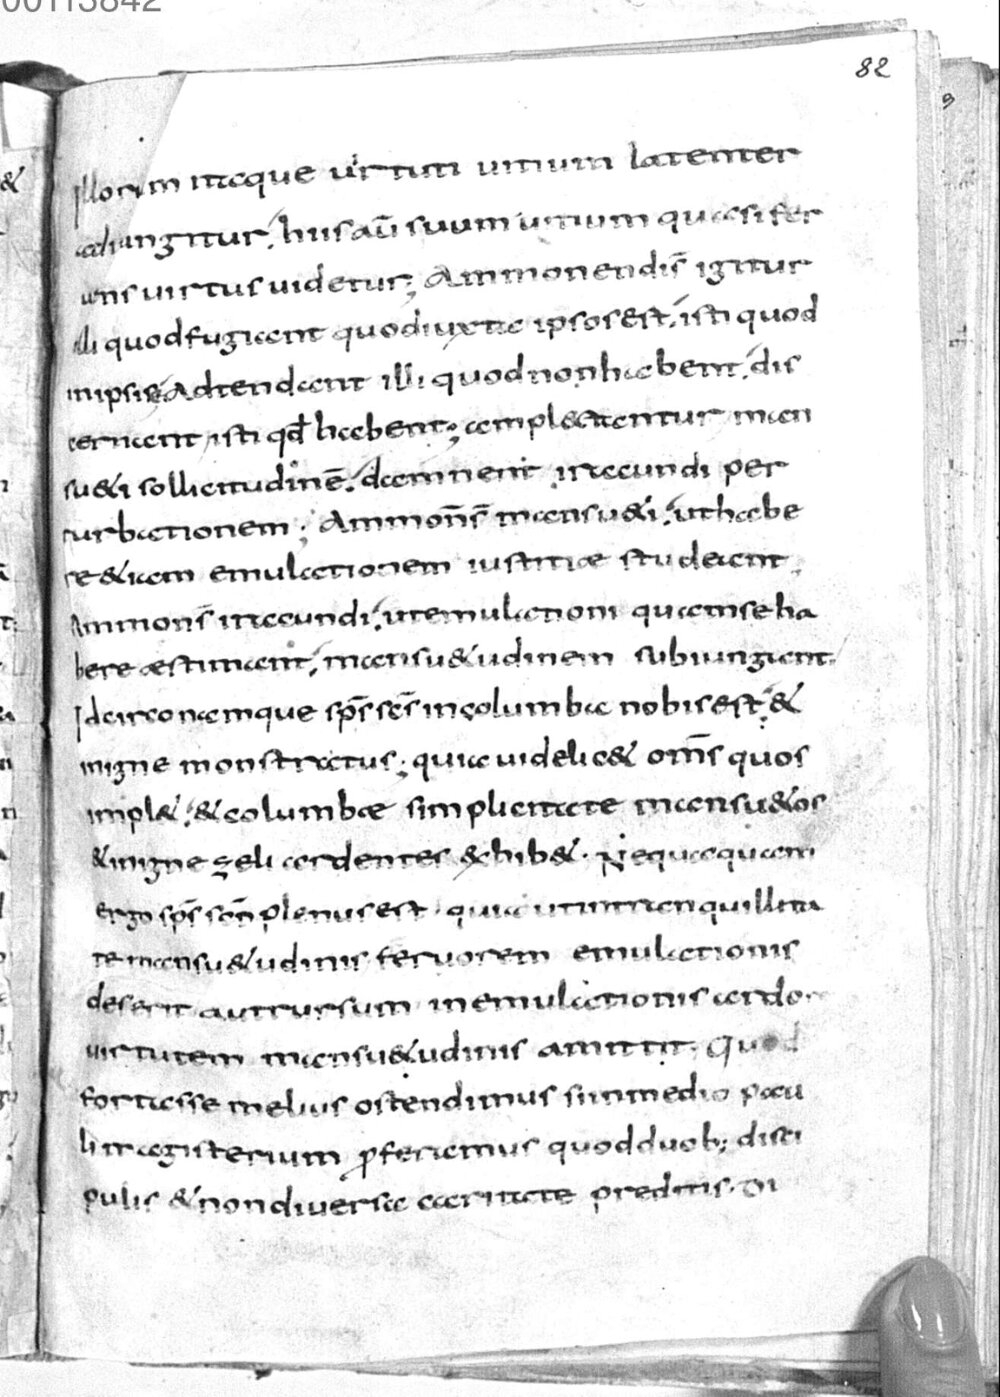 00113842
82
Illorum itaque uirtuti uitium latenter
adiungitur, huis aū suum uitium quasi fer
uens uirtus uidetur; Ammonendi s̄ igitur
illi quod fugiant quod iuxta ipsos est, isti quod
in ipsis Adtendant illi quod non habent, dis
cernant isti qđ habent; amplectantur man
su&i sollicitudinē, damnent iracundi per
turbationem; Ammonēs̄ mansu&i, ut habe
re &iam emulationem iustitiae studeant;
Ammons̄ iracundi, ut emulationi quam se ha
bere aestimant, mansu&udinem subiungant.
Idcirco namque sp̄s sc̄s in columba nobis est &
in igne monstratus; quia uidelic& om̄s quos
impl&, & columbae simplicitate mansu&os
& in igne zeli ardentes exhib&. Nequaquam
ergo sp̄s sc̄o plenus est quia ut in tranquillita
te mansu&udinis feruorem emulationis
deserit aut rursum in emulationis ardore
uirtutem mansu&udinis amittit. Quod
fortasse melius ostendimus si in medio pau
li magisterium p̄feramus quod duob; disci
pulis & non diuersa caritate preditis. Di